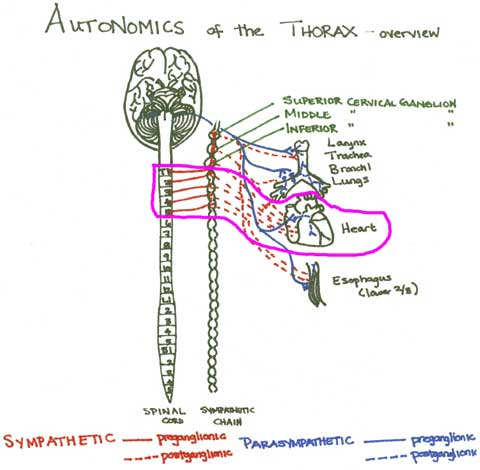 AUTONOMICS of the THORAX - overview
SUPERIOR CERVICAL GANGLION
MIDDLE " "
INFERIOR " "
Larynx
Trachea
Bronchi
Lungs
Heart
Esophagus
(lower 2/3)
SPINAL CORD
SYMPATHETIC CHAIN
SYMPATHETIC — preganglionic
--- postganglionic
PARASYMPATHETIC — preganglionic
--- postganglionic